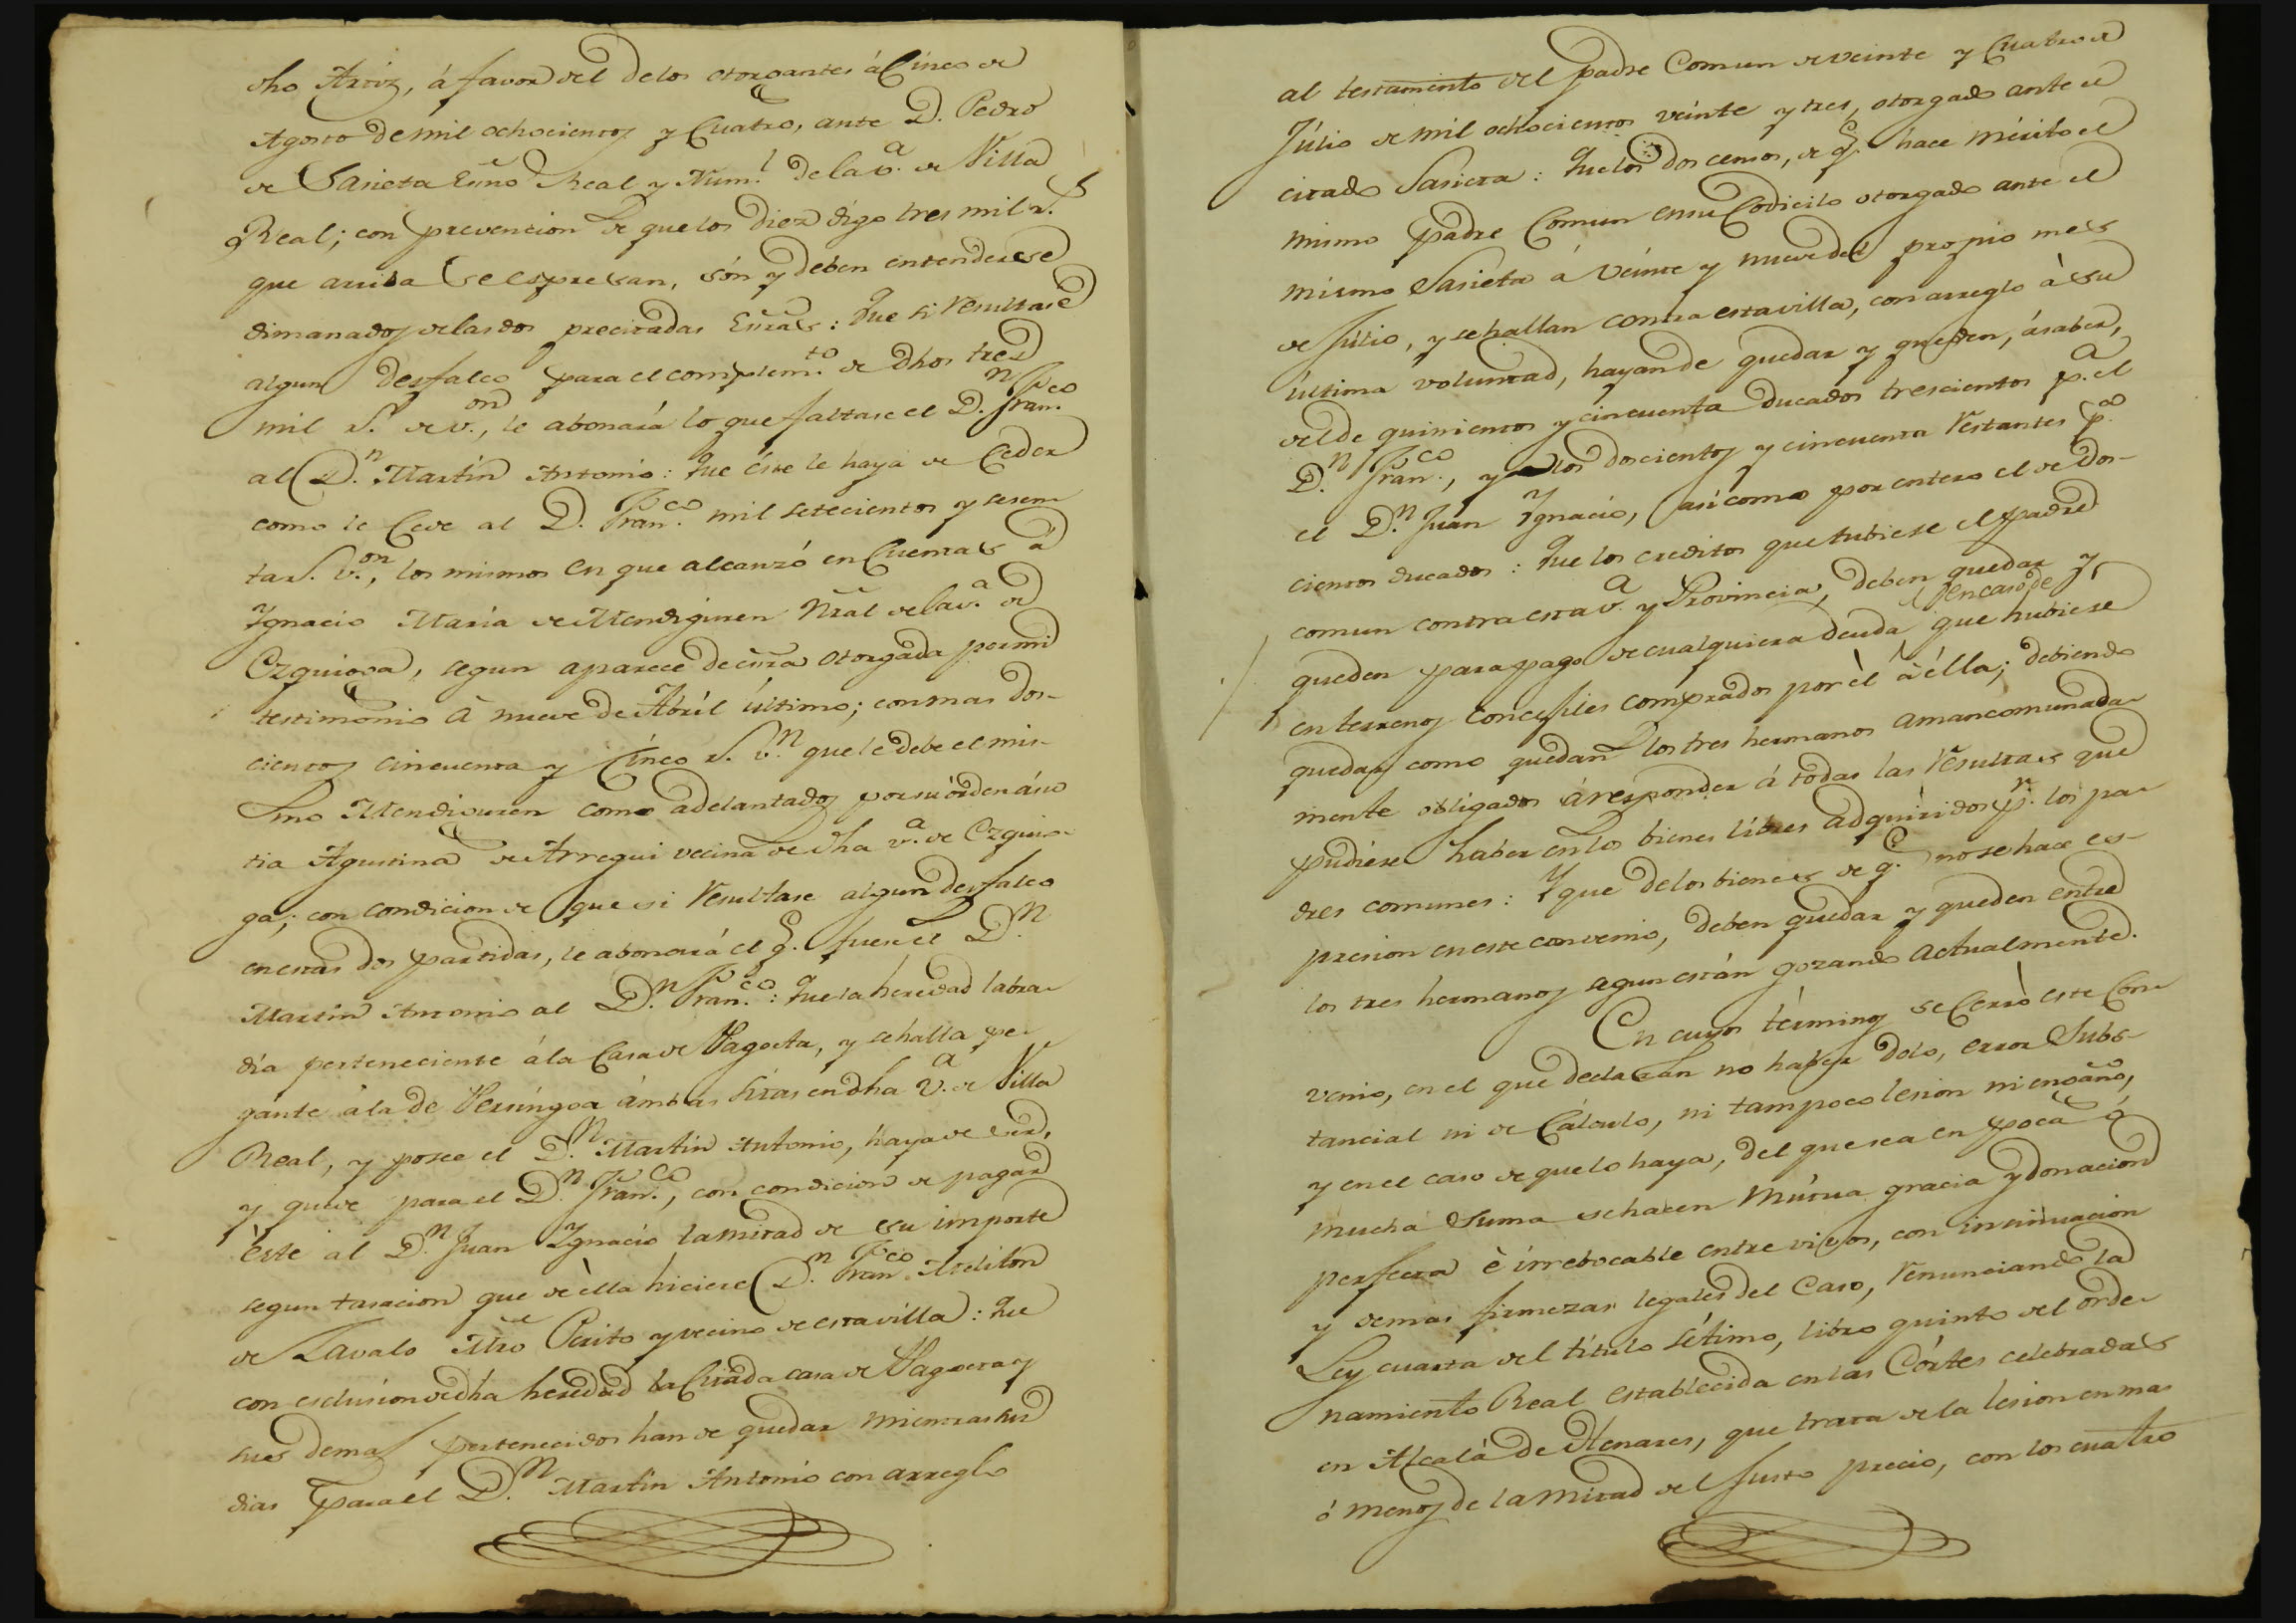 dho Ariz, á favor del de los otorgantes á Cinco de
Agosto de mil ochocientos y Cuatro, ante D. Pedro
de Sarieta Esño Real y Num.l de la v.a de Villa
Real; con prevencion de que los diez digo tres mil r.s
que arriba se espresan, són y deben entenderse
dimanados de las dos precitadas Esñas: Que si resultase
algun desfalco para el complem.to de dhos tres
mil r.s de v.on, le abonará lo que faltase el D.n Fran.co
al D.n Martin Antonio: Que éste le haya de Ceder
como le Cede al D. Fran.co mil setecientos y sesen-
ta r.s v.on, los mismos en que alcanzó en Cuentas á
Ygnacio Maria de Mendiguren Nral de la v.a de
Ezquioga, segun aparece de esña otorgada por mi
testimonio á nueve de Abril último; con mas dos-
cientos cincuenta y Cinco r.s v.n que le debe el mis-
mo Mendiguren como adelantados por su órden á su
tia Agustina de Arregui vecina de dha v.a de Ezquio-
ga; con condicion de que si resultase algun desfalco
en estas dos partidas, le abonará el q.e fuere el D.n
Martin Antonio al D.n Fran.co: Que la heredad labra-
dia perteneciente á la Casa de Vagoeta, y se halla pe-
gante á la de Versingoa ámbas sitas en dha v.a de Villa
Real, y posee el D.n Martin Antonio, haya de ser,
y quede para el D.n Fran.co, con condicion de pagar
èste al D.n Juan Ygnacio la mitad de su importe
segun tasacion que de èlla hiciere D.n Fran.co Meliton
de Lavalo Mro Perito y vecino de esta villa: Que
con esclusion de dha heredad la Citada casa de Vagoeta y
sus demas pertenecidos han de quedar mientras sus
dias para el D.n Martin Antonio con arreglo
al testamento del padre Comun de veinte y Cuatro de
Júlio de mil ochocientos veinte y tres, otorgado ante el
citado Sarieta: Que los dos censos, de q.e hace mérito el
mismo padre Comun en su Codicilo otorgado ante el
mismo Sarieta á veinte y nueve del propio mes
de Júlio, y se hallan contra esta villa, con arreglo à su
última voluntad, hayan de quedar y queden, á saber,
del de quinientos y cincuenta ducados trescientos p.a el
D.n Fran.co, y los doscientos y cincuenta restantes p.a
el D.n Juan Ygnacio, asi como por entero el de dos-
cientos ducados: Que los creditos que tubiese el padre
comun contra esta v.a y Provincia, deben quedar y
queden para pago de cualquiera deuda en caso de que hubiese
en terrenos concejiles comprados por èl à élla; debiendo
quedar como quedan los tres hermanos amancomunada-
mente obligados á responder á todas las resultas que
pudiese haber en los bienes libres adquiridos p.r los pa-
dres comunes: Y que de los bienes de q.e no se hace es-
presion en este convenio, deben quedar y queden entre
los tres hermanos segun están gozando actualmente.
En cuyos términos se Cerró este Con-
venio, en el que declaran no haber dolo, error Subs-
tancial ni de Cálculo, ni tampoco lesion ni engaño,
y en el caso de que lo haya, del que sea en poca ó
mucha suma se hacen mútua gracia y donacion
perfecta è irrebocable entre vivos, con insinuacion
y demas firmezas legales del Caso, renunciando la
Ley cuarta del titulo sétimo, libro quinto del orde-
namiento Real establecida en las Córtes celebradas
en Alcalá de Henares, que trata de la lesion en mas
ó menos de la mitad del Justo precio, con los cuatro